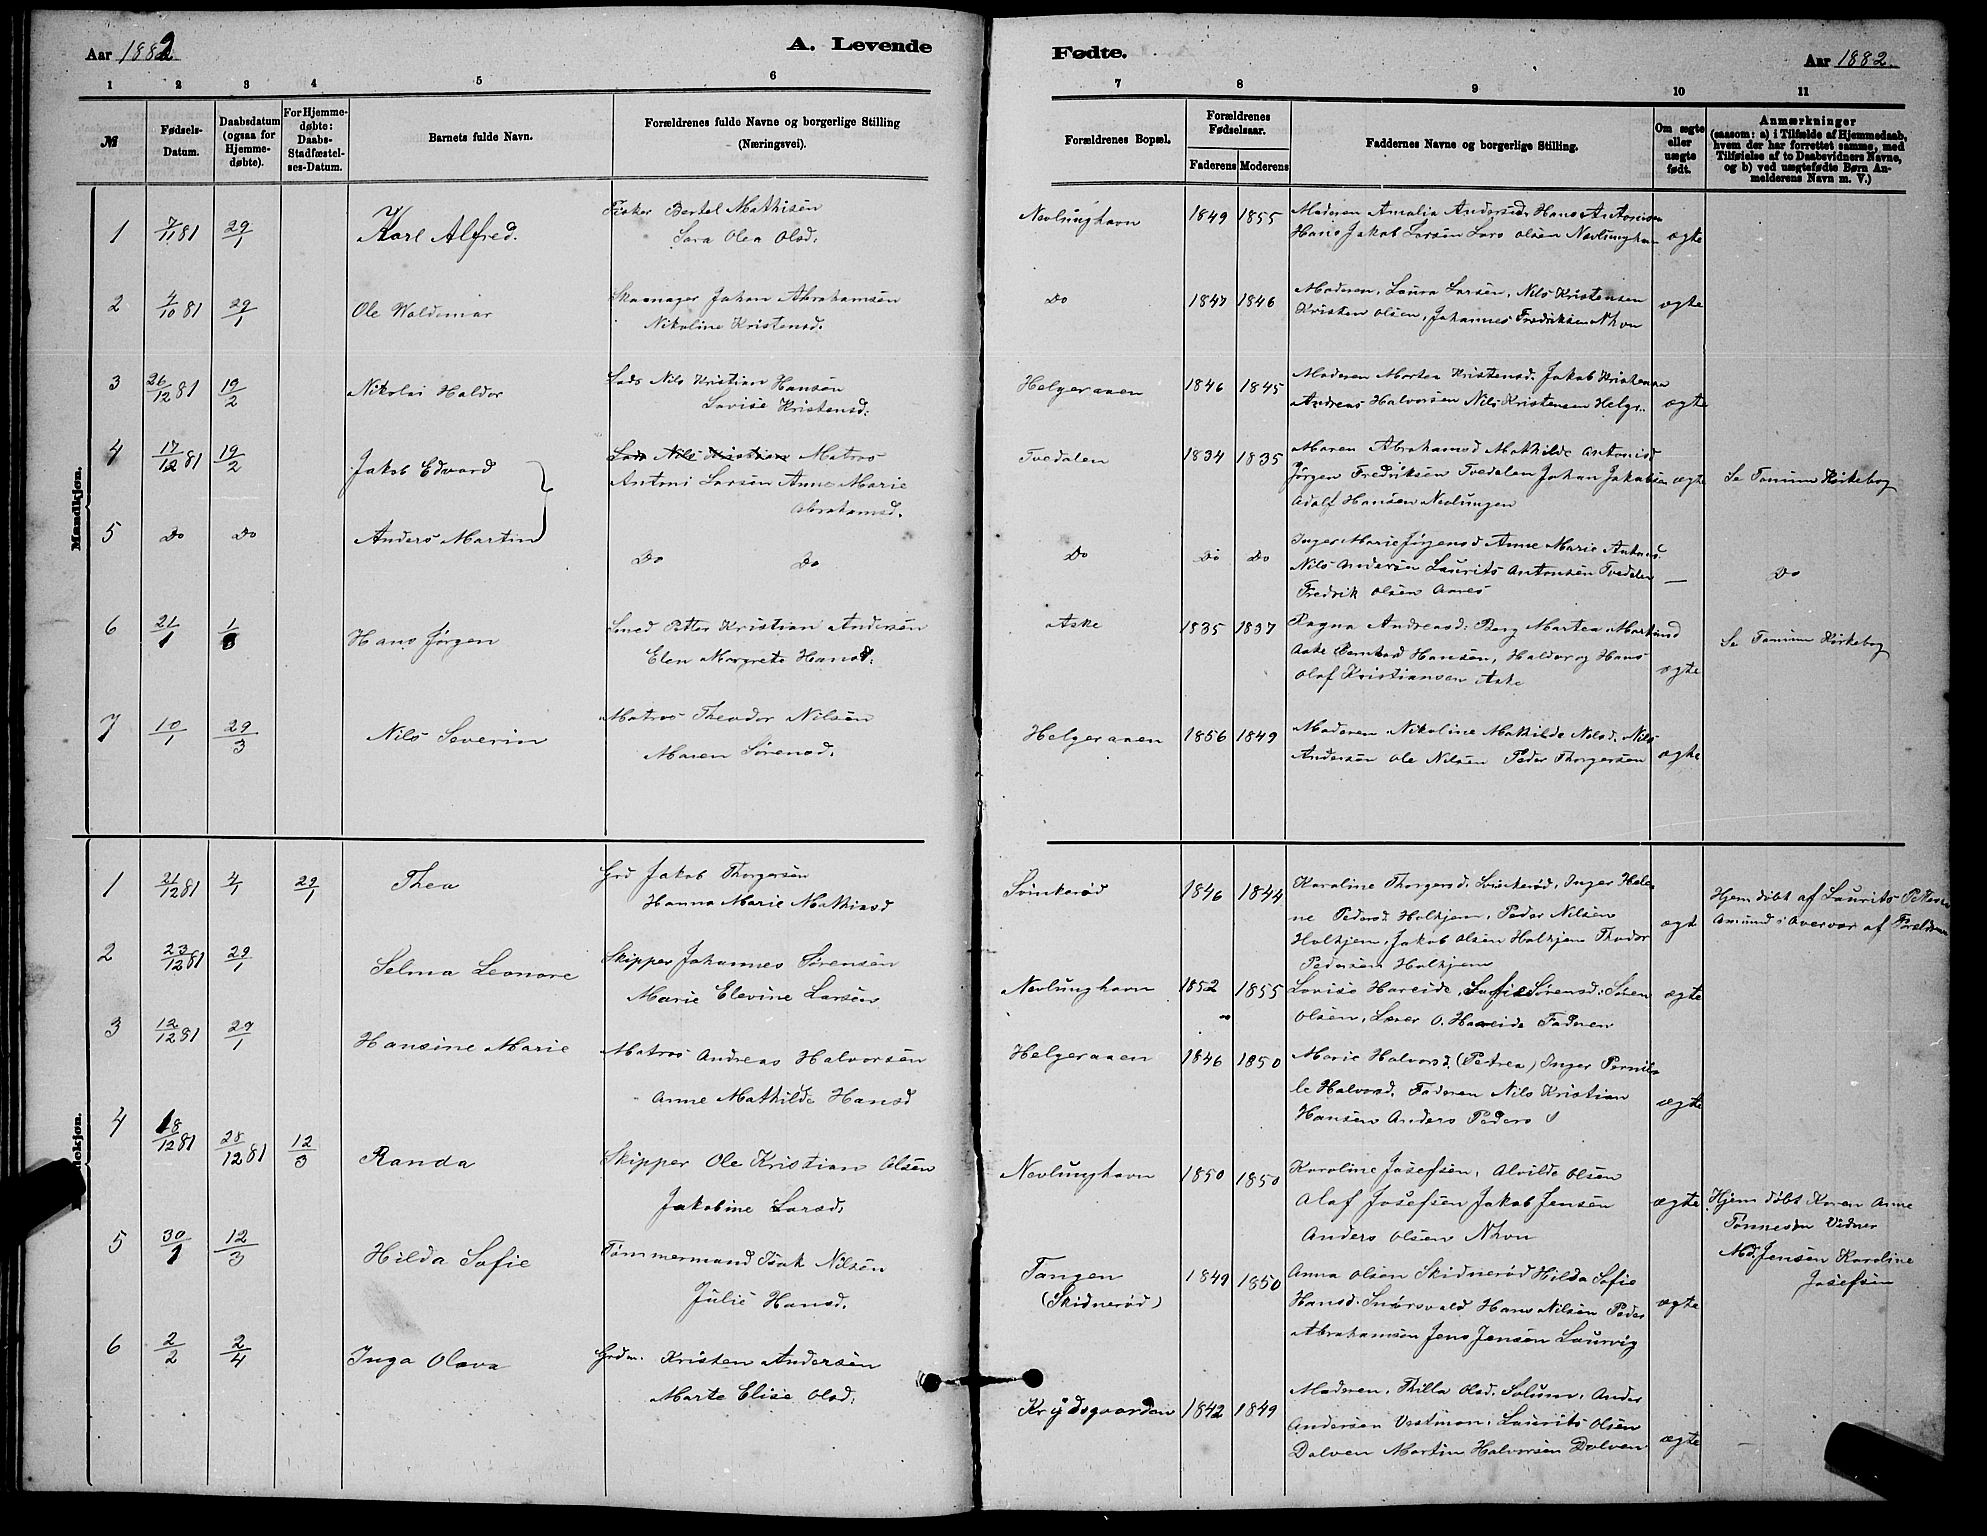 Aar 1882
A. Levende
Fødte.
Aar 1882.
1 2 3 4 5 6 7 8 9 10 11
№
Fødsels-
Datum.
Daabsdatum
(ogsaa for
Hjemme-
døbte).
For Hjemme-
døbte:
Daabs-
Stadfæstel-
ses-Datum.
Barnets fulde Navn.
Forældrenes fulde Navne og borgerlige Stilling
(Næringsvei).
Forældrenes Bopæl.
Forældrenes
Fødselsaar.
Faderens Moderens
Faddernes Navne og borgerlige Stilling.
Om ægte
eller
uægte
født.
Anmærkninger
(saasom: a) i Tilfælde af Hjemmedaab,
hvem der har forrettet samme, med
Tilføielse af to Daabsvidners Navne,
og b) ved uægtefødte Børn An-
melderens Navn m. V.)
Mandkjøn.
1 7/11 81 29/1 Karl Alfred.
Fisker Bertel Mathisen
Sara Olea Olsd.
Nevlunghavn 1849 1855
Moderen Amalia Andersd: Hans Antonisen
Hans Jakob Larsen Lars Olsen Nevlunghavn ægte
2 4/10 81 29/1 Ole Waldemar
Skomager Johan Abrahamsen
Nikoline Kristensd.
Do 1847 1846
Moderen, Laura Larsen, Nils Kristensen
Kristen Olsen, Johannes Fredriksen Nhvn ægte
3 26/12 81 19/2 Nikolai Haldor
Lods Nils Kristian Hansen
Lovise Kristensd.
Helgeraaen 1846 1845
Moderen Martea Kristensd. Jakob Kristensen
Andreas Halvorsen Nils Kristensen Helgr. ægte
4 17/12 81 19/2 Jakob Edvard
Lods Nils Kristian Matros
Antoni Larsen Anne Marie
Abrahamsd.
Tvedalen 1834 1835
Maren Abrahamsd Mathilde Antonisd
Jørgen Fredriksen Tvedalen Johan Jakobsen ægte
Adolf Hansen Nevlungen
Se Tanum Kirkebog
5 Do Do Anders Martin
Do Do
Do Do Do
Inger Marie Jørgensd Anne Marie Antonis.
Nils Andersen Laurits Antonsen Tvedalen —
Fredrik Olsen Aanes
Do
6 21/1 1/3 Hans Jørgen
Smed Petter Kristian Andersen
Elen Margrete Hansd.
Aske 1835 1837
Ragna Andreasd: Berg Martea Martinsd
Aske Bernhard Hansen, Haldor og Hans
Olaf Kristiansen Aske ægte
Se Tanum Kirkebog
7 10/1 29/3 Nils Severin
Matros Theodor Nilsen
Maren Sørensd.
Helgeraaen 1856 1849
Moderen Nikoline Mathilde Nilsd. Nils
Andersen Ole Nilsen Peder Thorgersen ægte
1 21/12 81 4/1 29/1 Thea
Grd Jakob Thorgersen
Hanna Marie Mathiasd
Svinkerød 1846 1844
Karoline Thorgersd. Svinkerød, Inger Hele-
ne Pedersd. Holkjem, Peder Nilsen
Holkjem, Jakob Olsen Holkjem Thodor
Pedersen Holkjem ægt
Hjemdøbt af Laurits Petersen
Amund i Overvær af Forældrene
2 23/12 81 29/1 Selma Leonore
Skipper Johannes Sørensen
Marie Elevine Larsen
Nevlunghavn 1852 1855
Lovise Hareide, Sofie Sørensd: Søren
Olsen, Lærer O. Hareide Faderen ægte
3 12/12 81 29/1 Hansine Marie
Matros Andreas Halvorsen
Anne Mathilde Hansd
Helgeraaen 1846 1850
Marie Halvorsd. (Petrea) Inger Pernil-
le Halvorsd. Faderen Nils Kristian
Hansen Anders Peders ægte
4 18/12 81 28/12 81 12/3 Randa
Skipper Ole Kristian Olsen
Jakobine Larsd.
Nevlunghavn 1850 1850
Karoline Josefsen, Alvilde Olsen
Olaf Josefsen Jakob Jensen
Anders Olsen Nhvn ægte
Hjemdøbt Karen Anne
Tønnesen Vidner
Md. Jensen Karoline
Josefsen
5 30/1 12/3 Hilda Sofie
Tømmermand Isak Nilsen
Julie Hansd.
Tangen
(Skidnerød)
1849 1850
Anna Olsen Skidnerød Hilda Sofie
Hansd. Snørsvald Hans Nilsen Peder
Abrahamsen Jens Jensen Laurvig ægte
6 2/2 2/4 Inga Olava
Grdm. Kristen Andersen
Marte Elise Olsd.
Krydsgaarden 1842 1849
Moderen, Thilla Olsd. Solum, Anders
Andersen Vestman, Laurits Olsen
Dolven Martin Halvorsen Dolven ægte